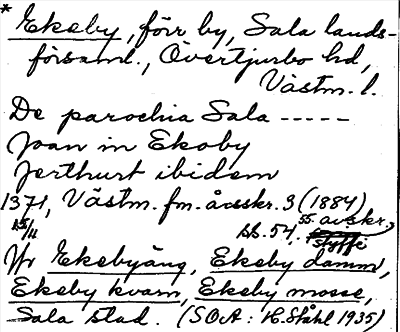 * Ekeby, förr by, Sala lands-
församl., Övertjurbo hd,
Västm. l.
De parochia Sala -----
Joan in Ekoby
Jerthurt ibidem
1371, Västm. fm. årsskr. 3 (1884)
15/11 bl. 54, 55. avskr.
Styffe
Ekebyäng, Ekeby damm,
Ekeby kvarn, Ekeby mosse,
Sala stad. (SOA: H. Ståhl 1935)